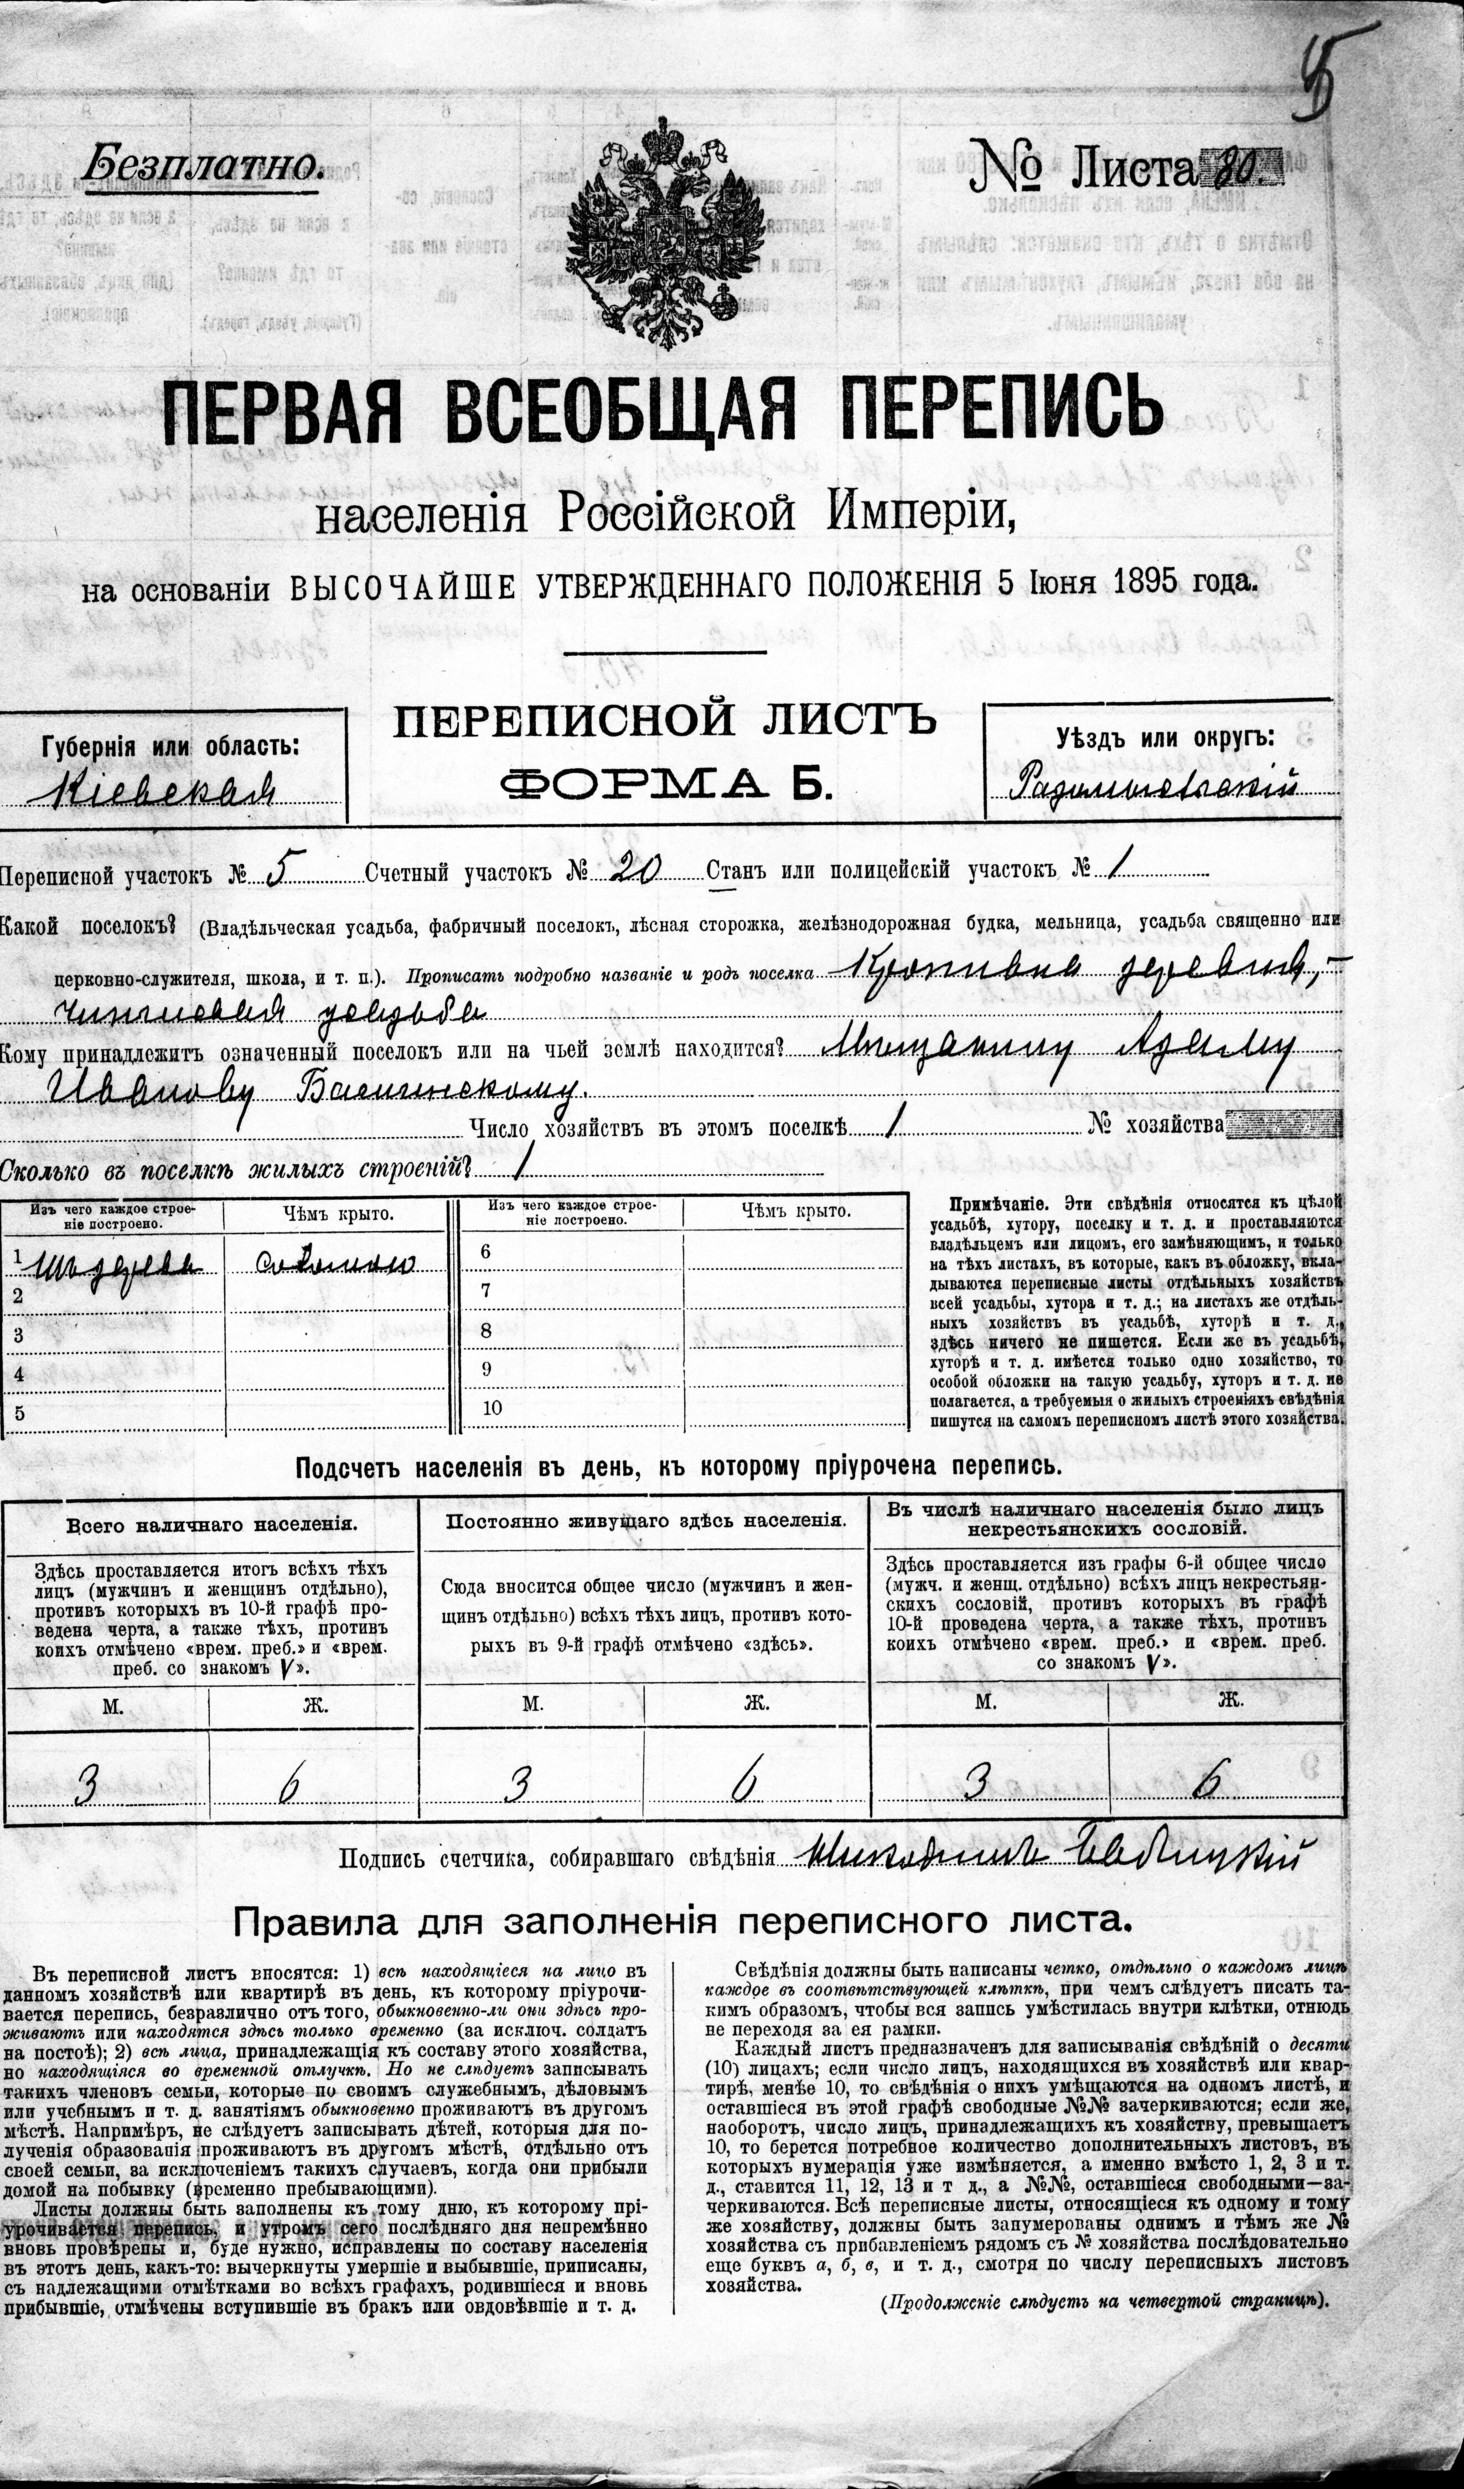 5
Безплатно.
№ Листа 80.
ПЕРВАЯ ВСЕОБЩАЯ ПЕРЕПИСЬ
населенія Россійской Имперіи,
на основаніи ВЫСОЧАЙШЕ УТВЕРЖДЕННАГО ПОЛОЖЕНІЯ 5 Іюня 1895 года.
Губернія или область:
Кіевская
ПЕРЕПИСНОЙ ЛИСТЪ
ФОРМА Б.
Уѣздъ или округъ:
Радомысльскій
Переписной участокъ № 5 Счетный участокъ № 20 Станъ или полицейскій участокъ № 1
Какой поселокъ? (Владѣльческая усадьба, фабричный поселокъ, лѣсная сторожка, желѣзнодорожная будка, мельница, усадьба священно или
церковно-служителя, школа, и т. п.). Прописать подробно названіе и родъ поселка Кропивна деревня,-
чиншевая усадьба
Кому принадлежитъ означенный поселокъ или на чьей землѣ находится? Мѣщанину Адаму
Иванову
Число хозяйствъ въ этомъ поселкѣ 1 № хозяйства
Сколько въ поселкѣ жилыхъ строеній? 1
Изъ чего каждое строе-
ніе построено.
Чѣмъ крыто.
Изъ чего каждое строе-
ніе построено.
Чѣмъ крыто.
1 Изъ дерева соломою 6
2 7
3 8
4 9
5 10
Примѣчаніе. Эти свѣдѣнія относятся къ цѣлой
усадьбѣ, хутору, поселку и т. д. и проставляются
владѣльцемъ или лицомъ, его замѣняющимъ, и только
на тѣхъ листахъ, въ которые, какъ въ обложку, вкла-
дываются переписные листы отдѣльныхъ хозяйствъ
всей усадьбы, хутора и т. д.; на листахъ же отдѣль-
ныхъ хозяйствъ въ усадьбѣ, хуторѣ и т. д.,
здѣсь ничего не пишется. Если же въ усадьбѣ,
хуторѣ и т. д. имѣется только одно хозяйство, то
особой обложки на такую усадьбу, хуторъ и т. д. не
полагается, а требуемыя о жилыхъ строеніяхъ свѣдѣнія
пишутся на самомъ переписномъ листѣ этого хозяйства.
Подсчетъ населенія въ день, къ которому пріурочена перепись.
Всего наличнаго населенія.
Здѣсь проставляется итогъ всѣхъ тѣхъ
лицъ (мужчинъ и женщинъ отдѣльно),
противъ которыхъ въ 10-й графѣ про-
ведена черта, а также тѣхъ, противъ
коихъ отмѣчено «врем. преб.» и «врем.
преб. со знакомъ V».
М. Ж.
3 6
Постоянно живущаго здѣсь населенія.
Сюда вносится общее число (мужчинъ и жен-
щинъ отдѣльно) всѣхъ тѣхъ лицъ, противъ кото-
рыхъ въ 9-й графѣ отмѣчено «здѣсь».
М. Ж.
3 6
Въ числѣ наличнаго населенія было лицъ
некрестьянскихъ сословій.
Здѣсь проставляется изъ графы 6-й общее число
(мужч. и женщ. отдѣльно) всѣхъ лицъ некрестьян-
скихъ сословій, противъ которыхъ въ графѣ
10-й проведена черта, а также тѣхъ, противъ
коихъ отмѣчено «врем. преб.» и «врем. преб.
со знакомъ V».
М. Ж.
3 6
Подпись счетчика, собиравшаго свѣдѣнія Никодимъ
Правила для заполненія переписного листа.
Въ переписной листъ вносятся: 1) всѣ находящіеся на лицо въ
данномъ хозяйствѣ или квартирѣ въ день, къ которому пріурочи-
вается перепись, безразлично отъ того, обыкновенно-ли они здѣсь про-
живаютъ или находятся здѣсь только временно (за исключ. солдатъ
на постоѣ); 2) всѣ лица, принадлежащія къ составу этого хозяйства,
но находящіяся во временной отлучкѣ. Но не слѣдуетъ записывать
такихъ членовъ семьи, которые по своимъ служебнымъ, дѣловымъ
или учебнымъ и т. д. занятіямъ обыкновенно проживаютъ въ другомъ
мѣстѣ. Напримѣръ, не слѣдуетъ записывать дѣтей, которыя для по-
лученія образованія проживаютъ въ другомъ мѣстѣ, отдѣльно отъ
своей семьи, за исключеніемъ такихъ случаевъ, когда они прибыли
домой на побывку (временно пребывающими).
Листы должны быть заполнены къ тому дню, къ которому прі-
урочивается перепись, и утромъ сего послѣдняго дня непремѣнно
вновь провѣрены и, буде нужно, исправлены по составу населенія
въ этотъ день, какъ-то: вычеркнуты умершіе и выбывшіе, приписаны,
съ надлежащими отмѣтками во всѣхъ графахъ, родившіеся и вновь
прибывшіе, отмѣчены вступившіе въ бракъ или овдовѣвшіе и т. д.
Свѣдѣнія должны быть написаны четко, отдѣльно о каждомъ лицѣ
каждое въ соотвѣтствующей клѣткѣ, при чемъ слѣдуетъ писать та-
кимъ образомъ, чтобы вся запись умѣстилась внутри клѣтки, отнюдь
не переходя за ея рамки.
Каждый листъ предназначенъ для записыванія свѣдѣній о десяти
(10) лицахъ; если число лицъ, находящихся въ хозяйствѣ или квар-
тирѣ, менѣе 10, то свѣдѣнія о нихъ умѣщаются на одномъ листѣ, и
оставшіеся въ этой графѣ свободные №№ зачеркиваются; если же,
наоборотъ, число лицъ, принадлежащихъ къ хозяйству, превышаетъ
10, то берется потребное количество дополнительныхъ листовъ, въ
которыхъ нумерація уже измѣняется, а именно вмѣсто 1, 2, 3 и т.
д., ставится 11, 12, 13 и т д., а №№, оставшіеся свободными—за-
черкиваются. Всѣ переписные листы, относящіеся къ одному и тому
же хозяйству, должны быть занумерованы однимъ и тѣмъ же №
хозяйства съ прибавленіемъ рядомъ съ № хозяйства послѣдовательно
еще буквъ а, б, в, и т. д., смотря по числу переписныхъ листовъ
хозяйства.
(Продолженіе слѣдуетъ на четвертой страницѣ).